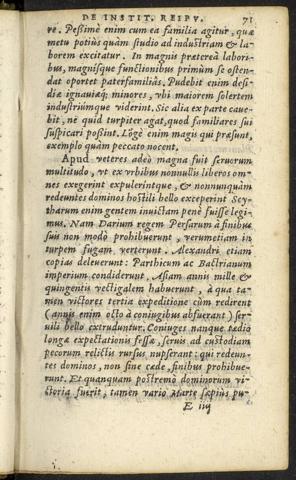 DE INSTIT. REIPV. 71
re. Pessimè enim cum ea familia agitur, quæ
metu potiùs quàm studio ad industriam & la-
borem excitatur. In magnis prætereà labori-
bus, magnisque functionibus primùm se osten-
dat oportet paterfamiliâs. Pudebit enim desi-
diæ ignauiæq; minores, vbi maiorem solertem
industriúmque viderint. Sic alia ex parte caue-
bit, nè quid turpiter agat, quod familiares sui
suspicari possint. Lõgè enim magis qui præsunt,
exemplo quàm peccato nocent.
Apud veteres adeò magna fuit seruorum
multitudo, vt ex vrbibus nonnullis liberos om-
nes exegerint expulerintque, & nonnunquàm
redeuntes dominos hostili bello exceperint Scy-
tharum enim gentem inuictam penè fuisse legi-
mus. Nam Darium regem Persarum à finibus
suis non modò prohibuerunt, verumetiam in
turpem fugam verterunt. Alexandri etiam
copias deleuerunt: Parthicum ac Bactrianum
imperium condiderunt. Asiam annis mille &
quingentis vectigalem habuerunt, à qua ta-
men victores tertia expeditione cùm redirent
(annis enim octo à coniugibus abfuerant) ser-
uili bello extruduntur. Coniuges nanque tædio
longæ expectationis fessæ, seruis ad custodiam
pecorum relictis rursus nupserant: qui redeun-
tes dominos, non sine cæde, finibus prohibue-
runt. Et quanquam postremò dominorum vi-
ctoria fuerit, tamen vario Marte sæpiùs pu-
E iiij